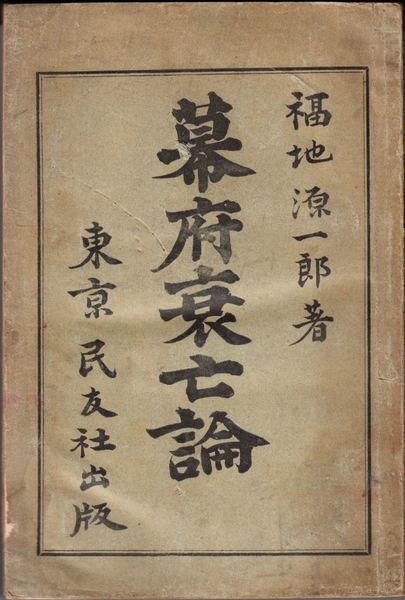 福地源一郎著
幕府衰亡論
東京民友社出版